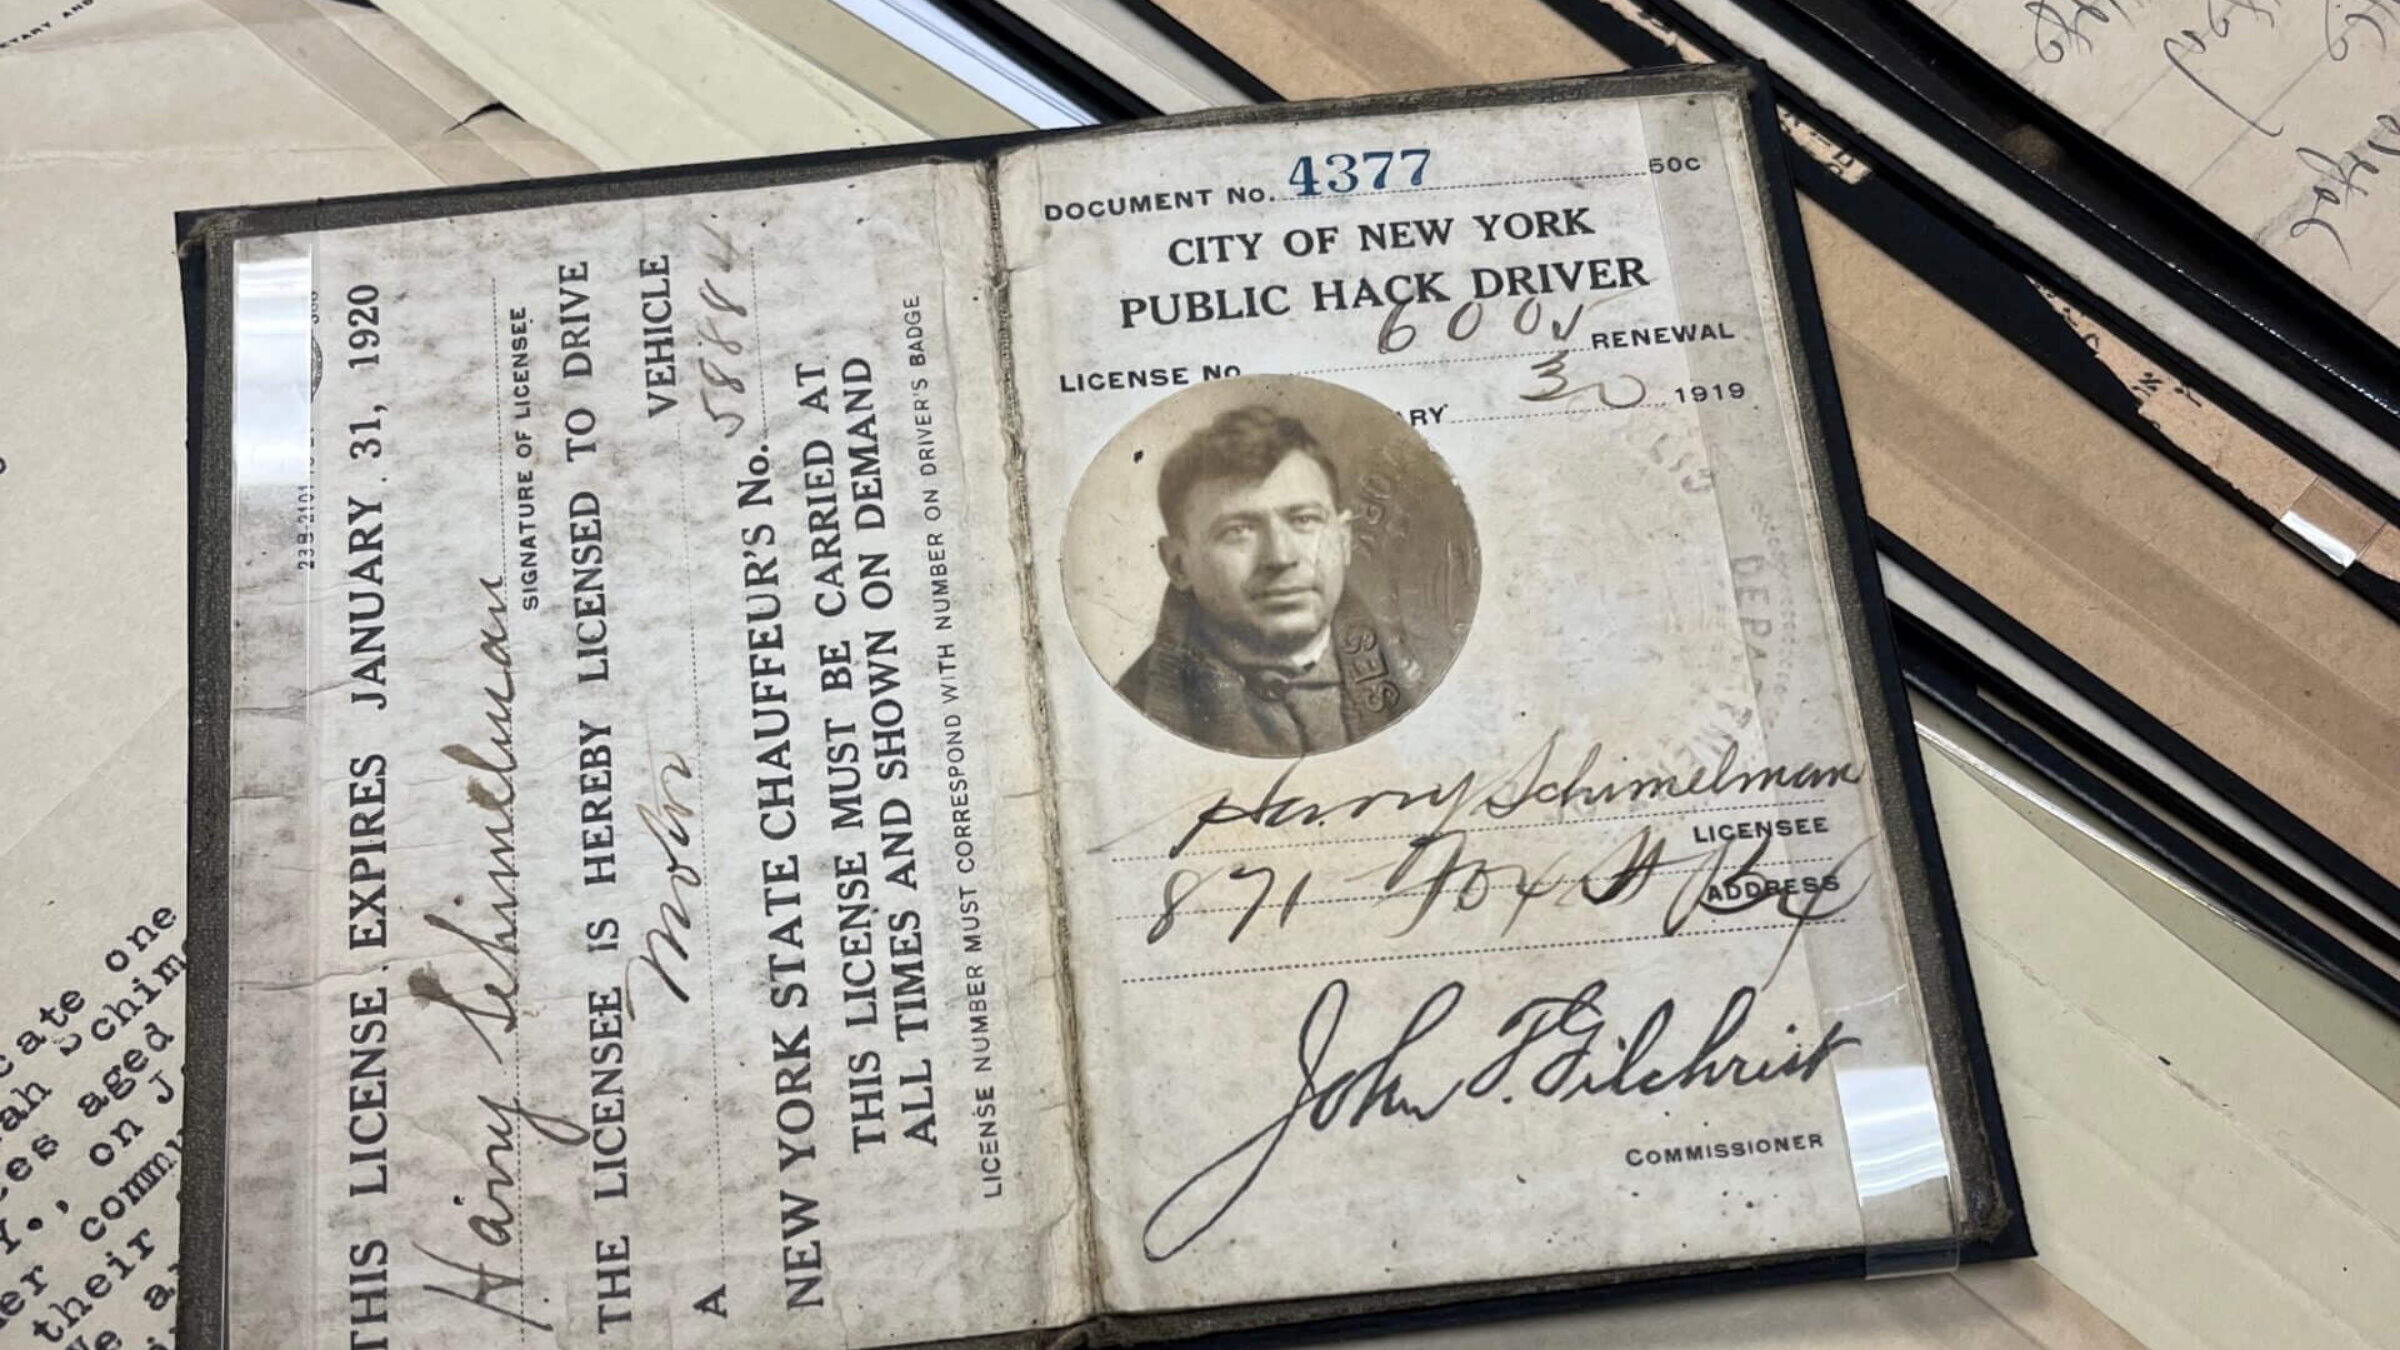 THIS LICENSE EXPIRES JANUARY 31, 1920
Harry Schimelman
SIGNATURE OF LICENSEE
THE LICENSEE IS HEREBY LICENSED TO DRIVE
A Motor VEHICLE
NEW YORK STATE CHAUFFEUR'S No. 58884
THIS LICENSE MUST BE CARRIED AT
ALL TIMES AND SHOWN ON DEMAND
LICENSE NUMBER MUST CORRESPOND WITH NUMBER ON DRIVER'S BADGE
DOCUMENT No. 4377 50c
CITY OF NEW YORK
PUBLIC HACK DRIVER
LICENSE No. RENEWAL
ARY 1919
SES
DEPA
Harry Schimelman
LICENSEE
871 Fox St Bx
ADDRESS
John F. Gilchrist
COMMISSIONER
cate one
ah Schim
es aged
on J
er commu
their